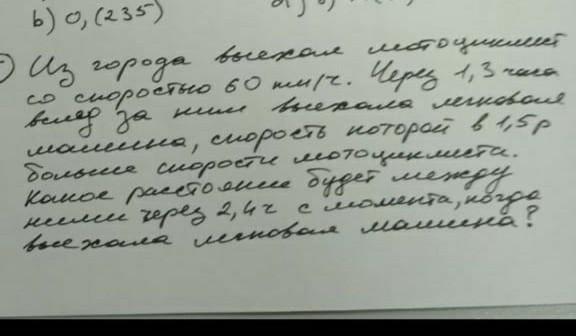 b) 0,(235)
Из города выехал мотоциклист
со скоростью 60 км/ч. Через 1,3 часа
вслед за ним выехала легковая
машина, скорость которой в 1,5 р
больше скорости мотоциклиста.
Какое расстояние будет между
ними через 2,4 ч с момента, когда
выехала легковая машина?